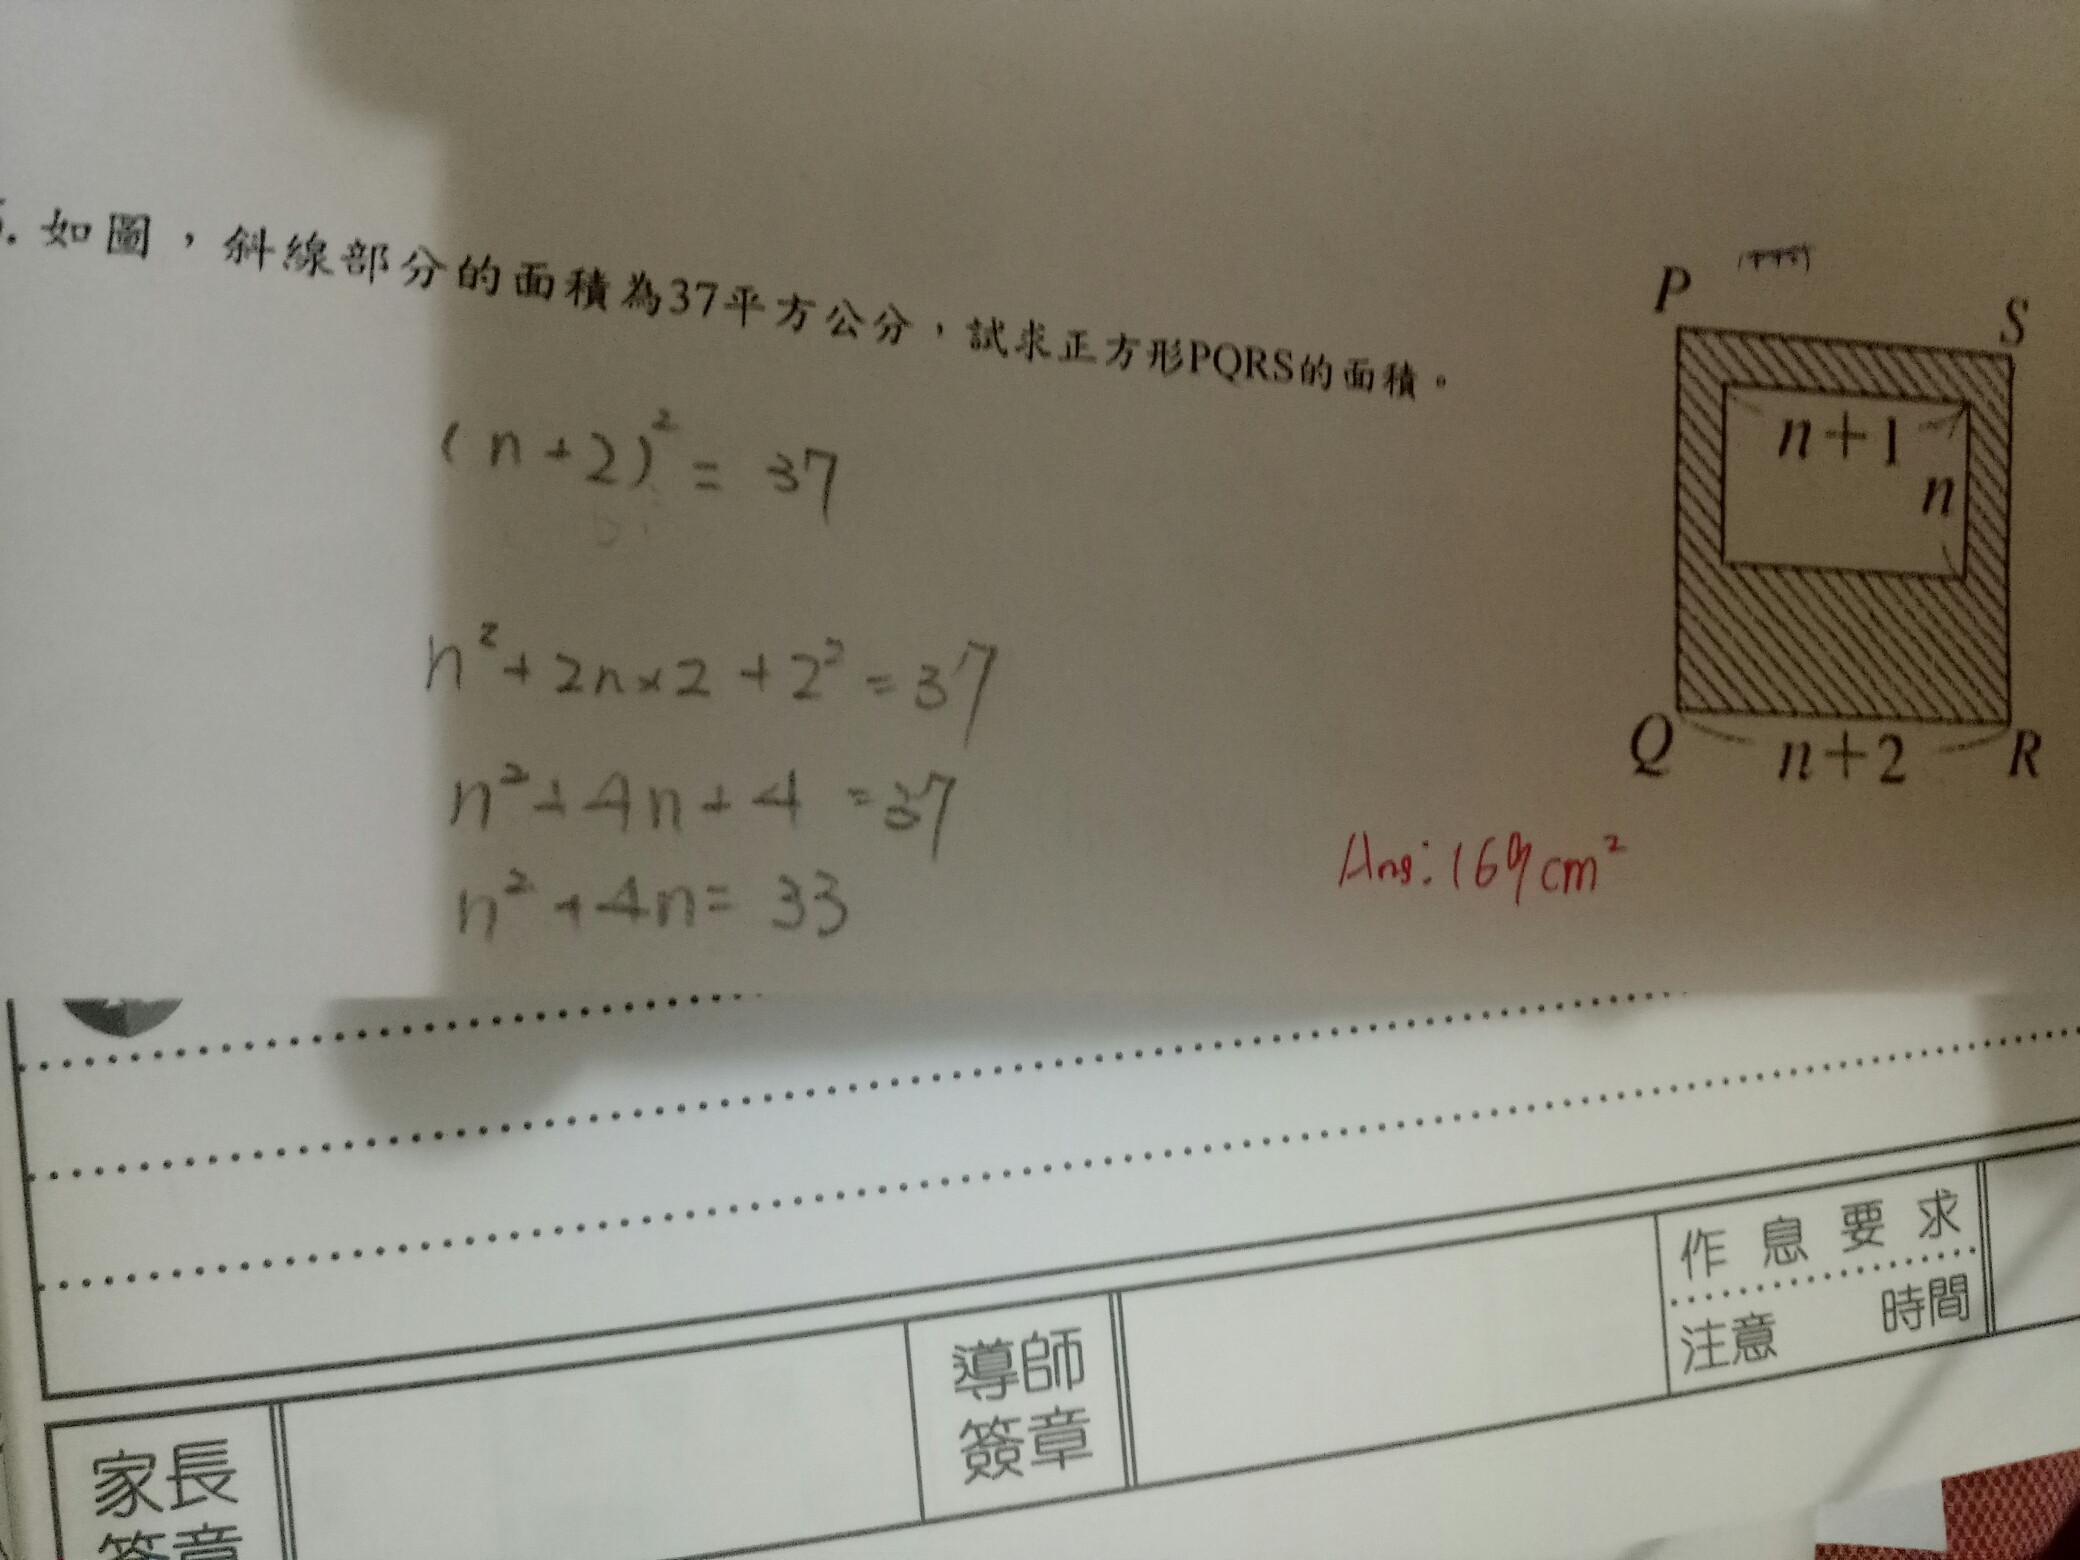 . 如圖，斜線部分的面積為37平方公分，試求正方形PQRS的面積。
P
S
n+1
n
Q
n+2
R
(n+2)² = 37
n²+2n×2+2²=37
n²+4n+4=37
n²+4n=33
Ans: 169cm²
作息要求
注意 時間
導師
簽章
家長
簽章